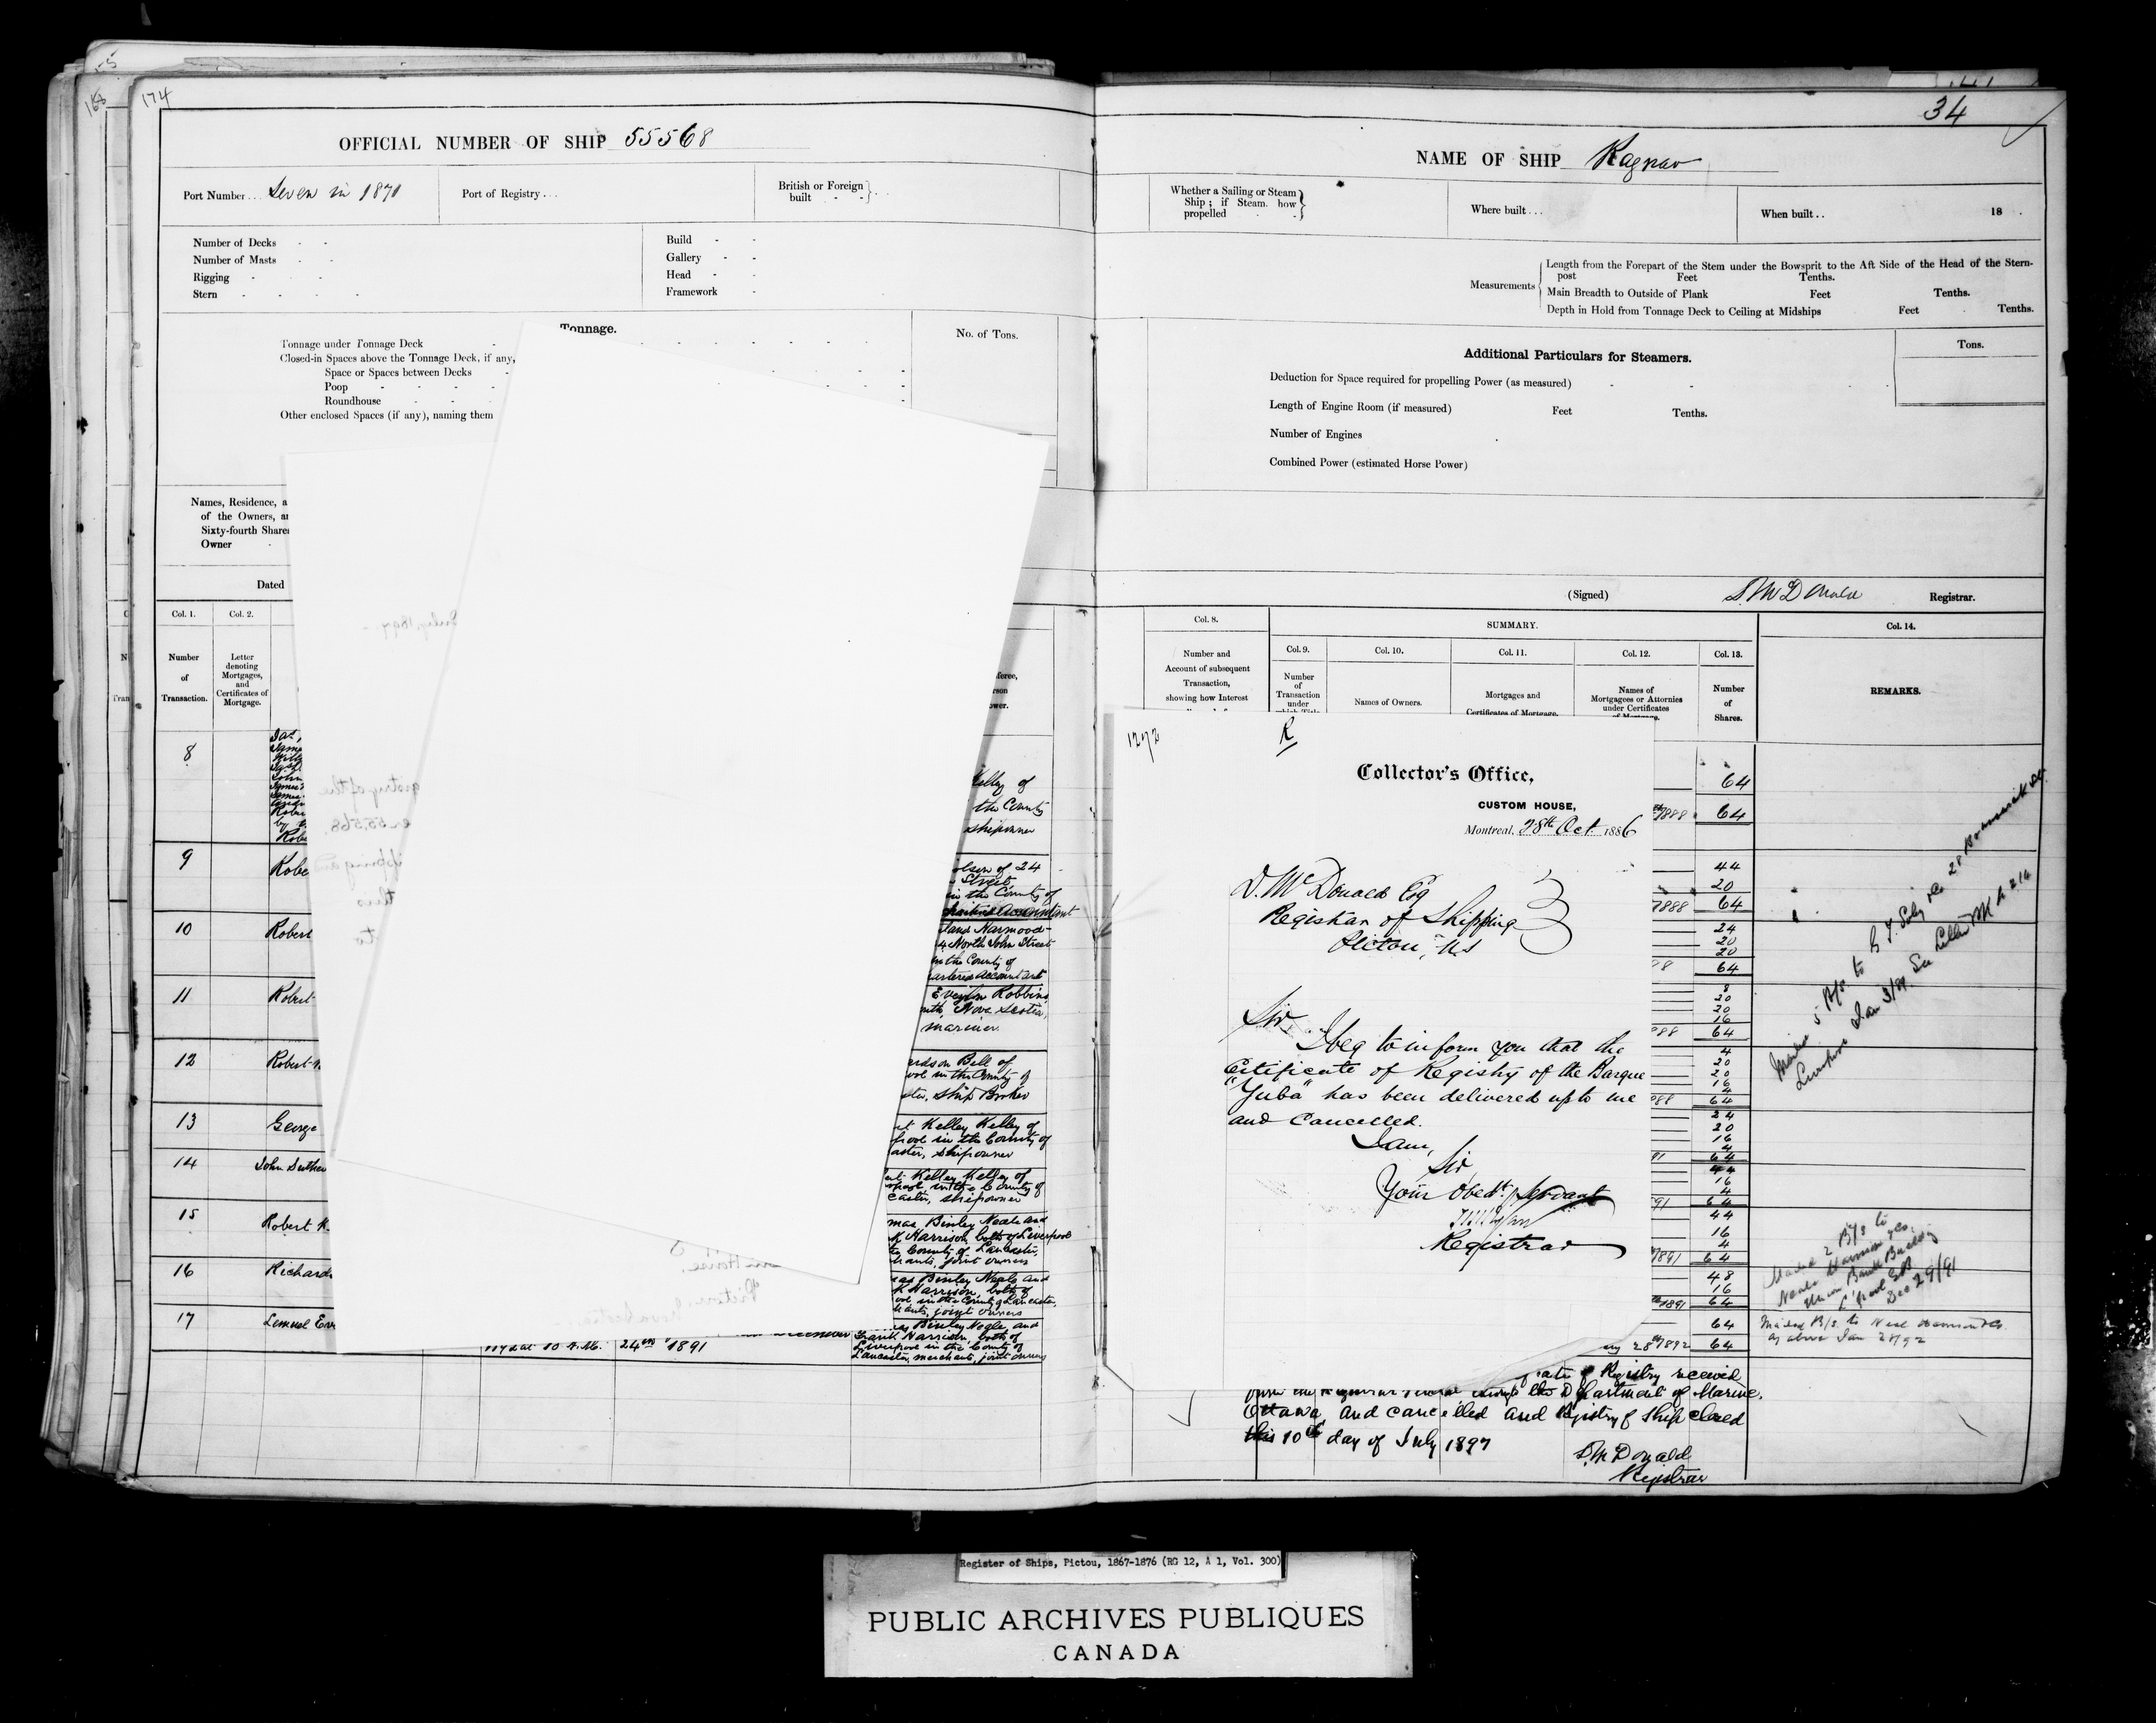 174
168
34
OFFICIAL NUMBER OF SHIP 55568
Port Number... Seven in 1871
Port of Registry...
British or Foreign built
Number of Decks
Number of Masts
Rigging
Stern
Build
Gallery
Head
Framework
Tonnage.
No. of Tons.
Tonnage under Tonnage Deck
Closed-in Spaces above the Tonnage Deck, if any,
Space or Spaces between Decks
Poop
Roundhouse
Other enclosed Spaces (if any), naming them
Names, Residence, a
of the Owners, an
Sixty-fourth Shares
Owner
Dated
Col. 1.
Col. 2.
Number
of
Transaction.
Letter
denoting
Mortgages,
and
Certificates of
Mortgage.
8
Kelley of
the County
shipowner
9
Robe
of 24
Street
in the County of
Accountant
10
Robert
Harmood-
North John Street
in the County of
Accountant
11
Robert
Evelyn Robbins
Nova Scotia,
mariner.
12
Robert
Bell of
in the County of
Ship Broker
13
George
Kelley Kelley of
pool in the County of
caster, shipowner
14
John Suther
Kelley Kelley of
pool, in the County of
caster, shipowner
15
Robert K.
mas Binley Neale and
K Harrison, both of Liverpool
County of Lancaster,
hants, joint owners
16
Richard
as Binley Neale and
K Harrison, both of
pool in the County of Lancaster,
hants, joint owners
17
Lemuel Eve
at 10 A.M.
24th 1891
Binley Neale and
Frank Harrison, both of
Liverpool in the County of
Lancaster, merchants, joint owners
NAME OF SHIP Ragnar
Whether a Sailing or Steam
Ship; if Steam, how
propelled
Where built...
When built.. 18
Measurements
Length from the Forepart of the Stem under the Bowsprit to the Aft Side of the Head of the Stern-
post Feet Tenths.
Main Breadth to Outside of Plank Feet Tenths.
Depth in Hold from Tonnage Deck to Ceiling at Midships Feet Tenths.
Additional Particulars for Steamers.
Tons.
Deduction for Space required for propelling Power (as measured)
Length of Engine Room (if measured) Feet Tenths.
Number of Engines
Combined Power (estimated Horse Power)
(Signed) D. McDonald Registrar.
Col. 8.
SUMMARY.
Col. 14.
Number and
Account of subsequent
Transaction,
showing how Interest
Col. 9.
Number
of
Transaction
under
which Title
Col. 10.
Names of Owners.
Col. 11.
Mortgages and
Certificates of Mortgage.
Col. 12.
Names of
Mortgagees or Attornies
under Certificates
of Mortgage.
Col. 13.
Number
of
Shares.
REMARKS.
1272
R
Collector's Office,
CUSTOM HOUSE,
Montreal, 28th Oct. 1886
D. McDonald Esq
Registrar of Shipping
Pictou, N.S
Sir,
I beg to inform you that the
Certificate of Registry of the Barque
"Yuba" has been delivered up to me
and Cancelled.
I am,
Sir,
Your Obedt. Servant
Registrar
64
1888 64
44
20
1888 64
24
20
20
64
8
20
20
16
64
4
20
20
16
4
64
24
20
16
4
64
44
16
4
64
44
16
4
1891 64
48
16
1891 64
64
28 1892 64
Mailed 2 B/s to
Neale Harrison & Co.
Union Bank Building
L'pool GB
Dec 29/91
Mailed B/s. to Neal Harrison & Co.
as above Jan 28/92
of Registry received
from the Registrar General through the Department of Marine,
Ottawa, and cancelled and Registry of Ship closed
this 10th day of July 1897
D. McDonald
Registrar
Register of Ships, Pictou, 1867-1876 (RG 12, A 1, Vol. 300)
PUBLIC ARCHIVES PUBLIQUES
CANADA